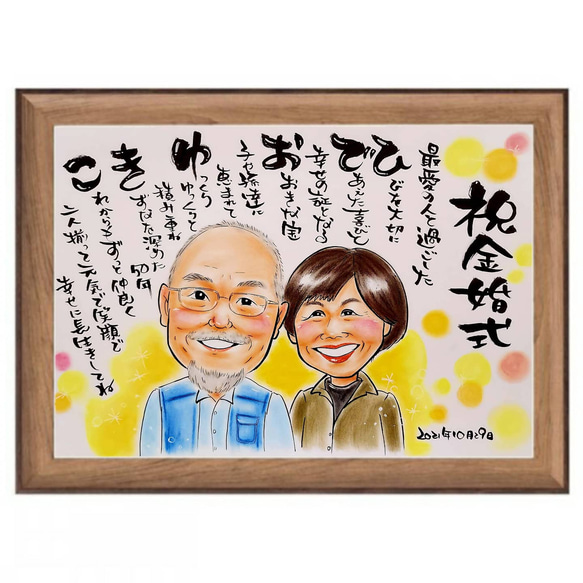 祝金婚式
最愛の人と過ごした
ひびを大切に
でであえた喜びと
幸せの証となる
おおきな宝
子や孫達に
恵まれて
ゆっくりゆっくりと
積み重ね
きずなを深めた
50年
これからもずっと仲良く
二人揃って元気で笑顔で
幸せに長生きしてね
2021年10月29日